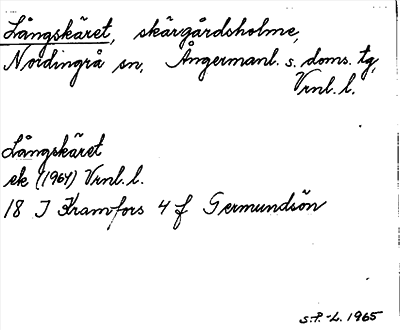 Långskäret, skärgårdsholme,
Nordingrå sn, Ångermanl. s. doms. tg,
Vrnl. l.
Långskäret
ek (1964) Vrnl. l.
18 J Kramfors 4 f Germundsön
S.P.-L. 1965